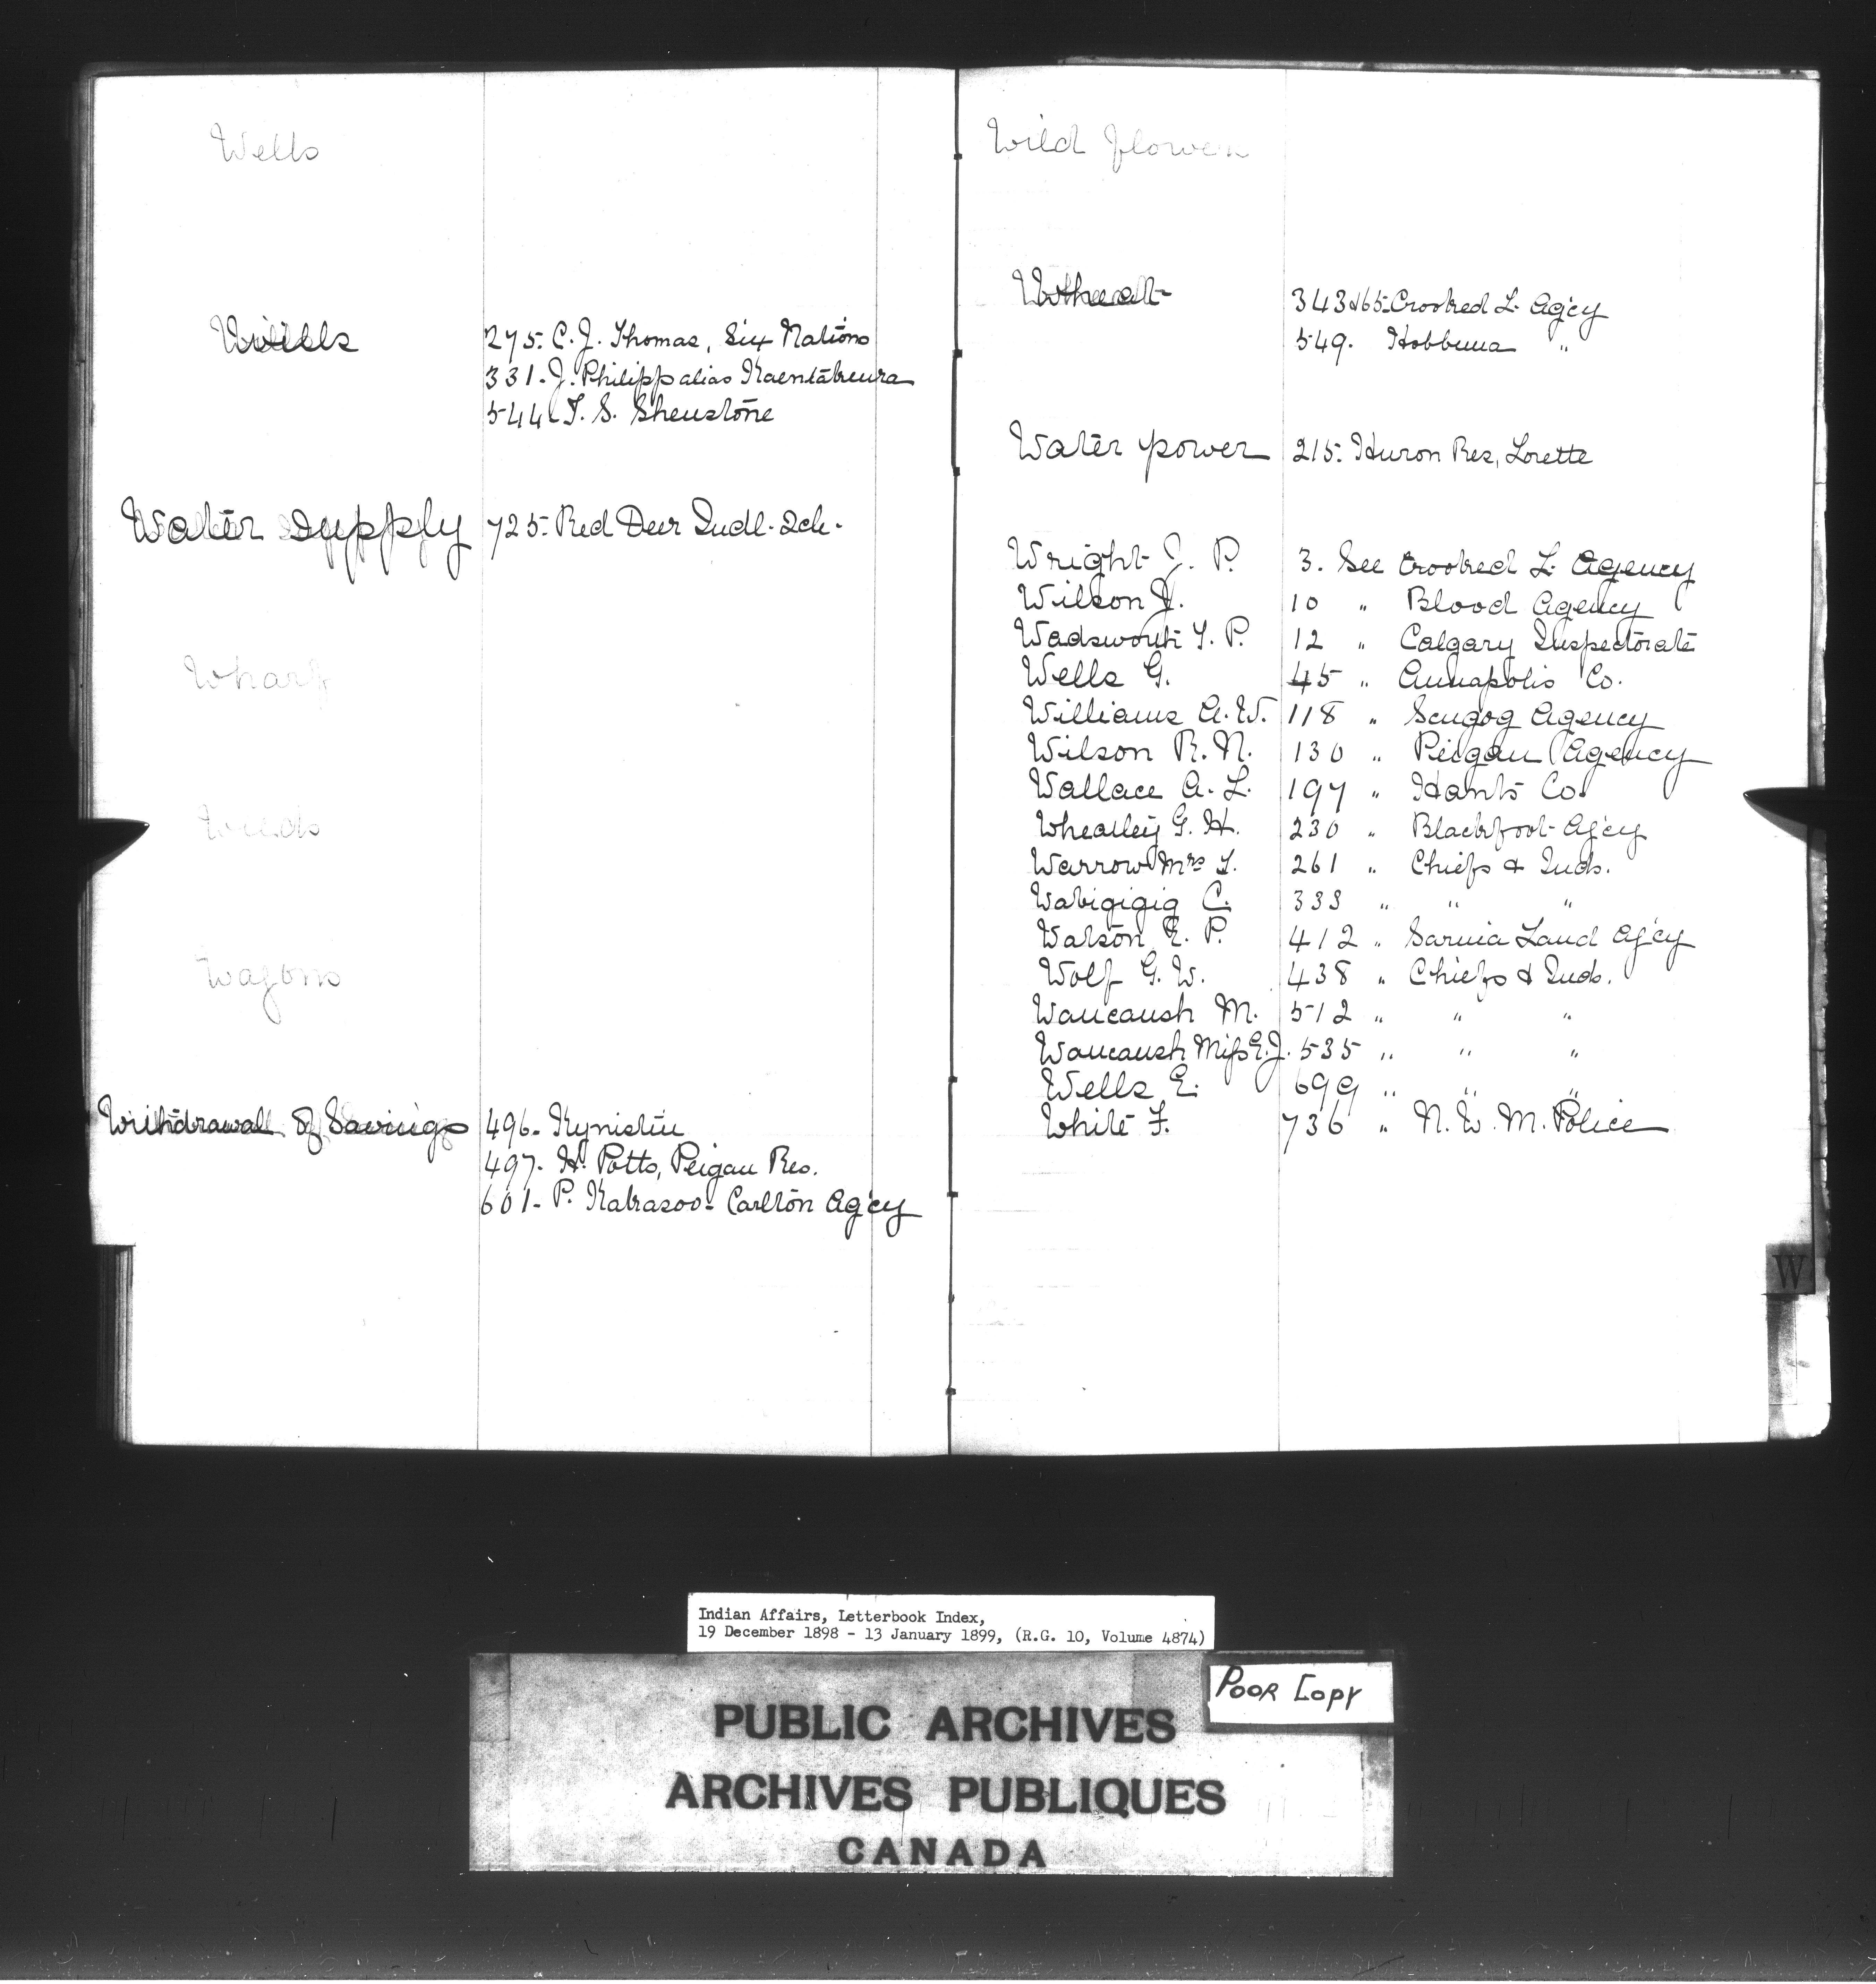 Wells
Wills
275. C. J. Thomas, Six Nations
331. J. Philipp alias Kaentakeura
544 T. S. Shenstone
Water Supply 725. Red Deer Indl. Sch.
Wharf
Weeds
Wagons
Withdrawal of Savings 496. Kynistin
497. H. Potts, Peigan Res.
601. P. Kakasoo. Carlton Agcy
Wild flower
Wheat
343 & 65. Crooked L. Agcy
549. Hobbema "
Water power 215. Huron Res, Lorette
Wright J. P. 3. See Crooked L. Agency
Wilson J. 10 " Blood Agency
Wadsworth T. P. 12 " Calgary Inspectorate
Wells G. 45 " Annapolis Co.
Williams A. W. 118 " Scugog Agency
Wilson R. N. 130 " Peigan Agency
Wallace A. L. 197 " Hants Co.
Wheatley G. H. 230 " Blackfoot Agcy
Warrow Mrs T. 261 " Chiefs & Inds.
Wabigigig C. 333 " " "
Watson E. P. 412 " Sarnia Land Agcy
Wolf G. W. 438 " Chiefs & Inds.
Waucaush M. 512 " " "
Waucaush Miss E. J. 535 " " "
Wells E. 699 " " "
White F. 736 " N. W. M. Police
W
Indian Affairs, Letterbook Index,
19 December 1898 - 13 January 1899, (R.G. 10, Volume 4874)
POOR COPY
PUBLIC ARCHIVES
ARCHIVES PUBLIQUES
CANADA